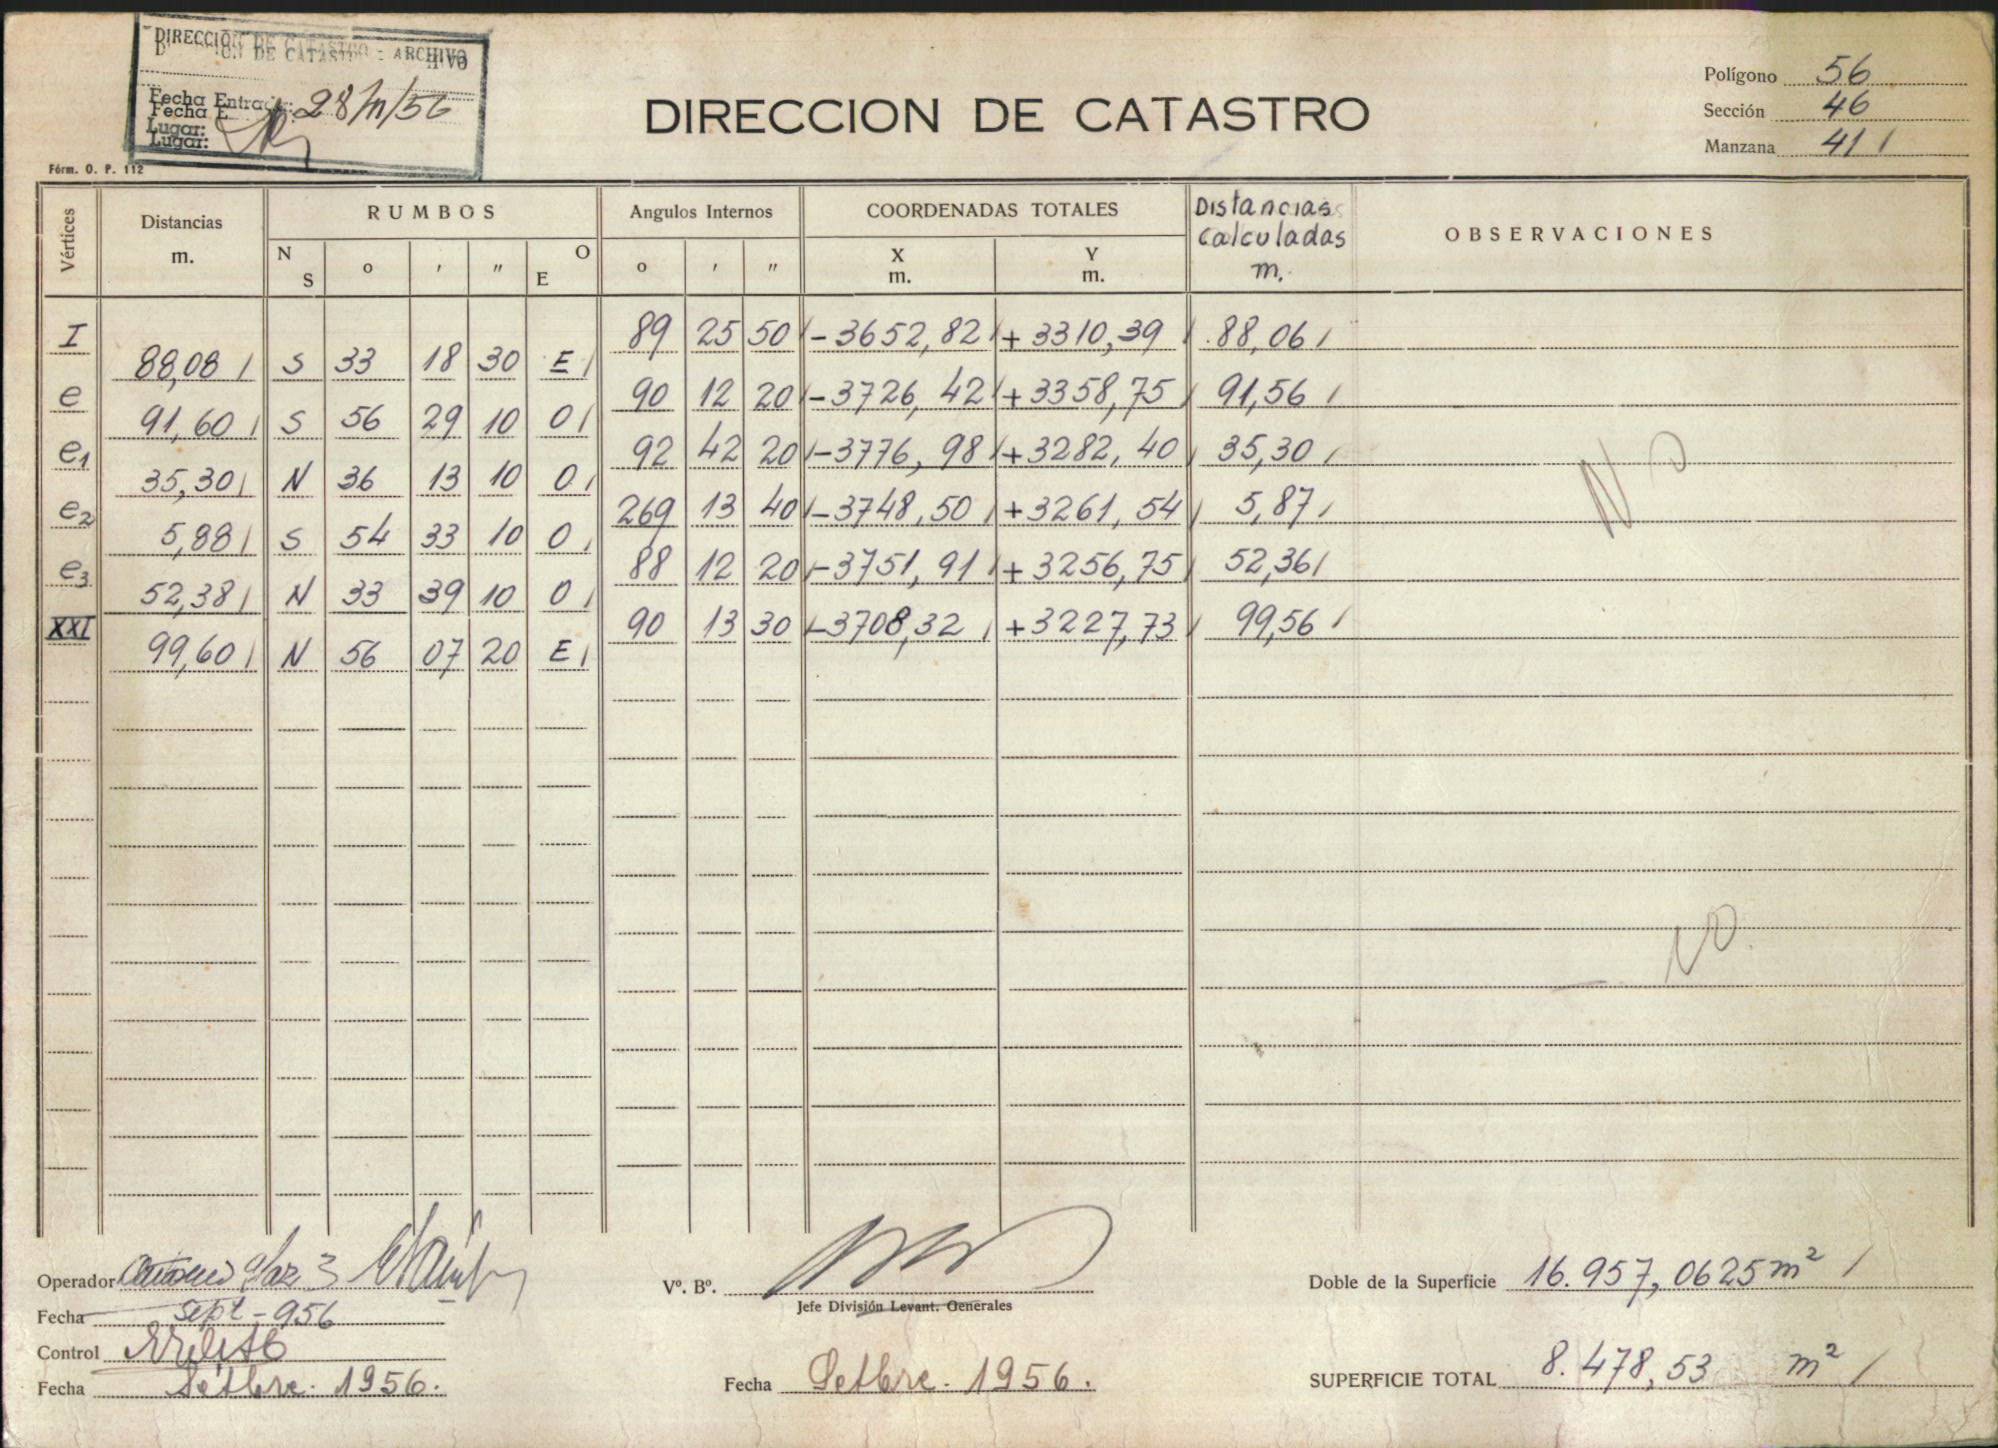 DIRECCIÓN DE CATASTRO - ARCHIVO
Fecha Entrada: 28/11/56
Fecha E
Lugar:
Lugar:
Fórm. O. P. 112
DIRECCION DE CATASTRO
Polígono 56
Sección 46
Manzana 41 /
Vértices Distancias m. RUMBOS Angulos Internos COORDENADAS TOTALES Distancias Calculadas m. OBSERVACIONES
N S o ' " O E o ' " X m. Y m.
I 89 25 50 -3652,82 +3310,39 88,06
88,08 S 33 18 30 E
e 90 12 20 -3726,42 +3358,75 91,56
91,60 S 56 29 10 O
e1 92 42 20 -3776,98 +3282,40 35,30
35,30 N 36 13 10 O
e2 269 13 40 -3748,50 +3261,54 5,87
5,88 S 54 33 10 O
e3 88 12 20 -3751,91 +3256,75 52,36
52,38 N 33 39 10 O
XXI 90 13 30 -3708,32 +3227,73 99,56
99,60 N 56 07 20 E
Operador
Fecha Sept - 956
Control
Fecha Setbre. 1956.
Vº. Bº.
Jefe División Levant. Generales
Fecha Setbre. 1956.
Doble de la Superficie 16.957,0625 m² /
SUPERFICIE TOTAL 8.478,53 m² /